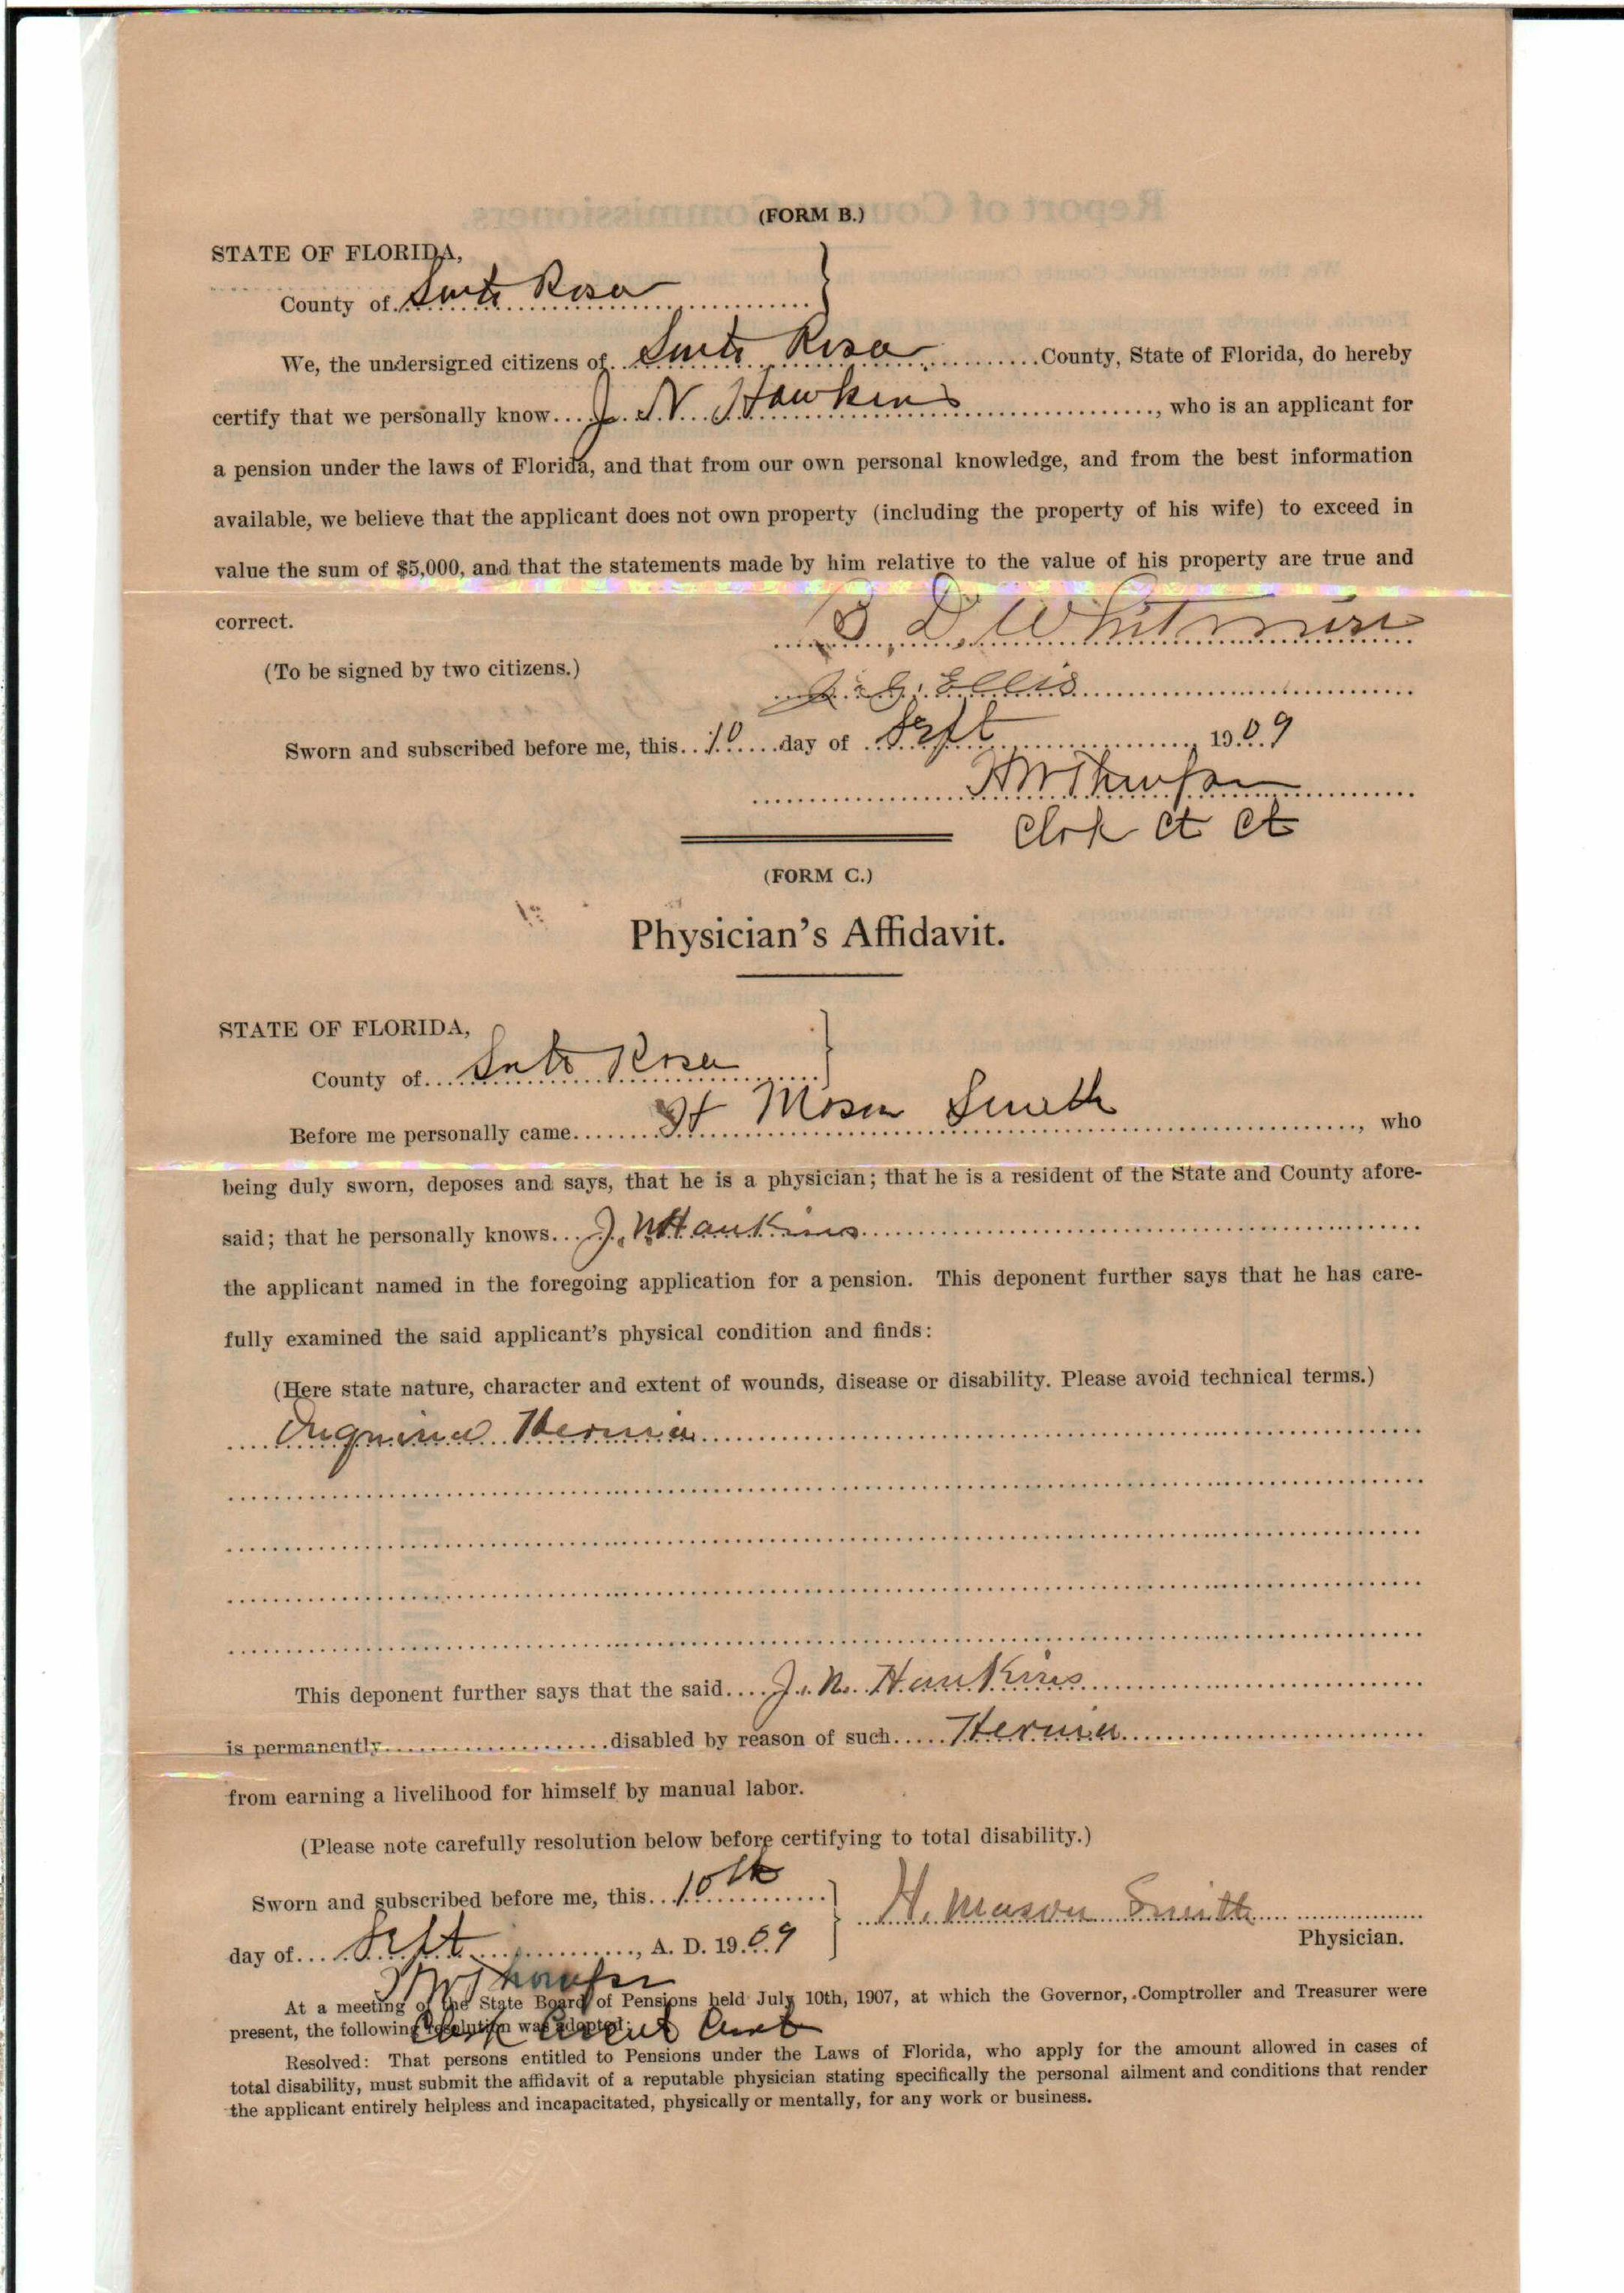 (FORM B.)
STATE OF FLORIDA,
County of Santa Rosa
We, the undersigned citizens of Santa Rosa County, State of Florida, do hereby
certify that we personally know J. N. Hawkins, who is an applicant for
a pension under the laws of Florida, and that from our own personal knowledge, and from the best information
available, we believe that the applicant does not own property (including the property of his wife) to exceed in
value the sum of $5,000, and that the statements made by him relative to the value of his property are true and
correct.
B D Whitmire
(To be signed by two citizens.)
J. G. Ellis
Sworn and subscribed before me, this 10 day of Sept, 1909
Clrk Ct Ct
(FORM C.)
Physician's Affidavit.
STATE OF FLORIDA,
County of Santa Rosa
Before me personally came H Mason Smith, who
being duly sworn, deposes and says, that he is a physician; that he is a resident of the State and County afore-
said; that he personally knows J. N. Haukins
the applicant named in the foregoing application for a pension. This deponent further says that he has care-
fully examined the said applicant's physical condition and finds:
(Here state nature, character and extent of wounds, disease or disability. Please avoid technical terms.)
Inguinal Hernia
This deponent further says that the said J. N. Haukins
is permanently disabled by reason of such Hernia
from earning a livelihood for himself by manual labor.
(Please note carefully resolution below before certifying to total disability.)
Sworn and subscribed before me, this 10th
H. Mason Smith
day of Sept, A. D. 1909
Physician.
At a meeting of the State Board of Pensions held July 10th, 1907, at which the Governor, Comptroller and Treasurer were
present, the following resolution was adopted:
Clerk Circuit Court
Resolved: That persons entitled to Pensions under the Laws of Florida, who apply for the amount allowed in cases of
total disability, must submit the affidavit of a reputable physician stating specifically the personal ailment and conditions that render
the applicant entirely helpless and incapacitated, physically or mentally, for any work or business.